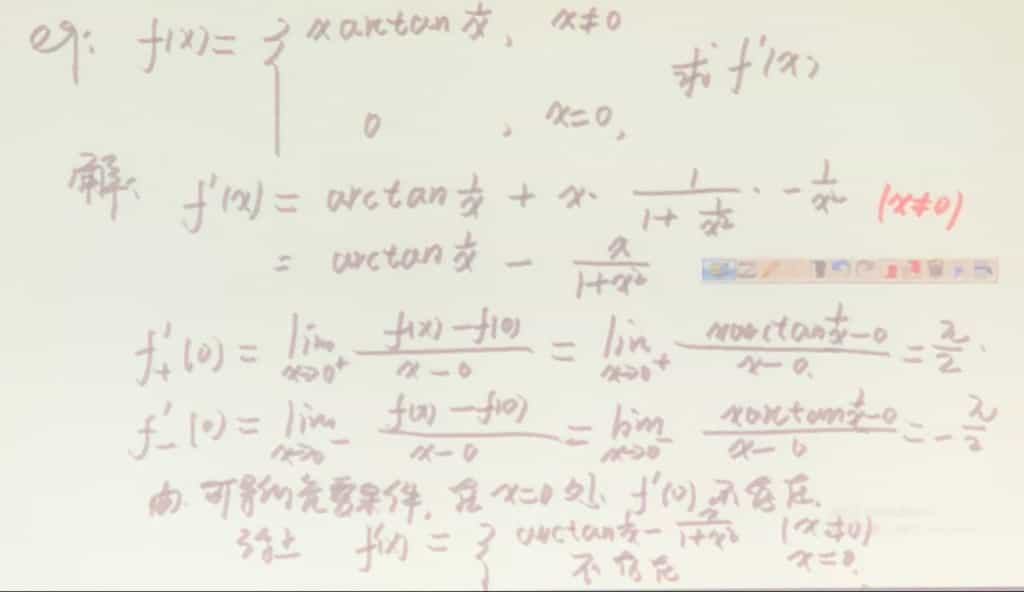 eg: f(x) = { x arctan 1/x, x≠0 求 f'(x)
0, x=0,
解: f'(x) = arctan 1/x + x · 1/(1 + 1/x²) · - 1/x² (x≠0)
= arctan 1/x - x/(1+x²)
f'₊(0) = lim x→0⁺ (f(x) - f(0))/(x-0) = lim x→0⁺ (x arctan 1/x - 0)/(x-0) = π/2.
f'₋(0) = lim x→0⁻ (f(x) - f(0))/(x-0) = lim x→0⁻ (x arctan 1/x - 0)/(x-0) = - π/2
由可导的充要条件, 在 x=0 处, f'(0) 不存在.
综上 f'(x) = { arctan 1/x - x/(1+x²) (x≠0)
不存在 x=0.